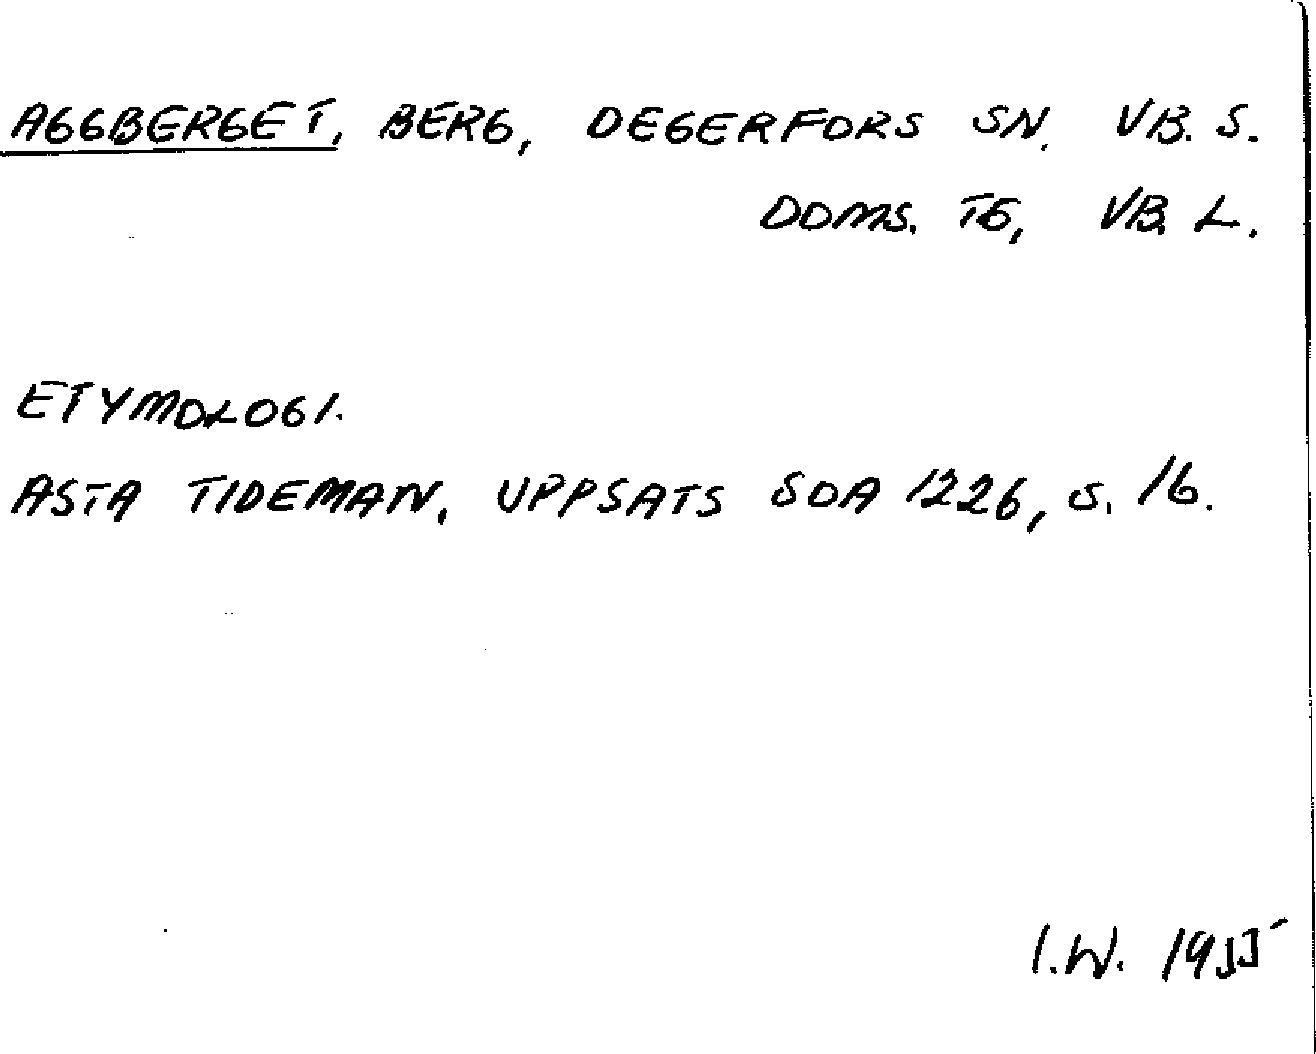 AGGBERGET, BERG, DEGERFORS SN. VB. S.
DOMS. TG, VB. L.
ETYMOLOGI.
ASTA TIDEMAN, UPPSATS SOA 1226, S. 16.
I.W. 1955